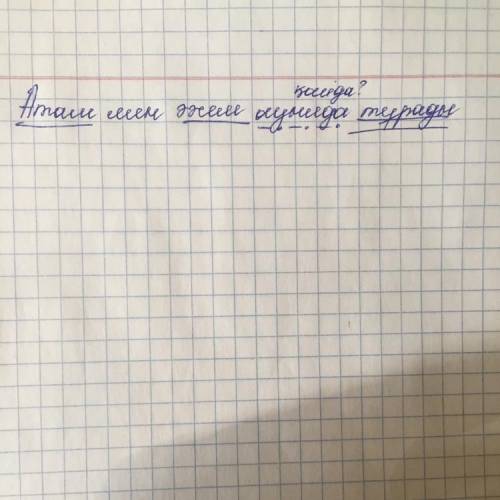 қайда?
Атам мен әжем ауылда тұрады